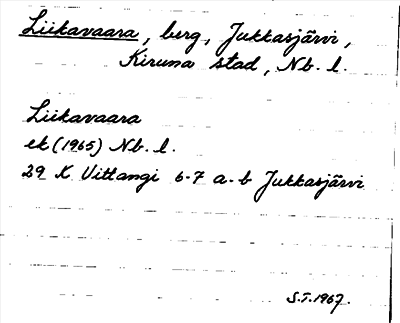 Liikavaara, berg, Jukkasjärvi,
Kiruna stad, Nb. l.
Liikavaara
ek (1965) Nb. l.
29 K Vittangi 6-7 a-b Jukkasjärvi
S.T. 1967.